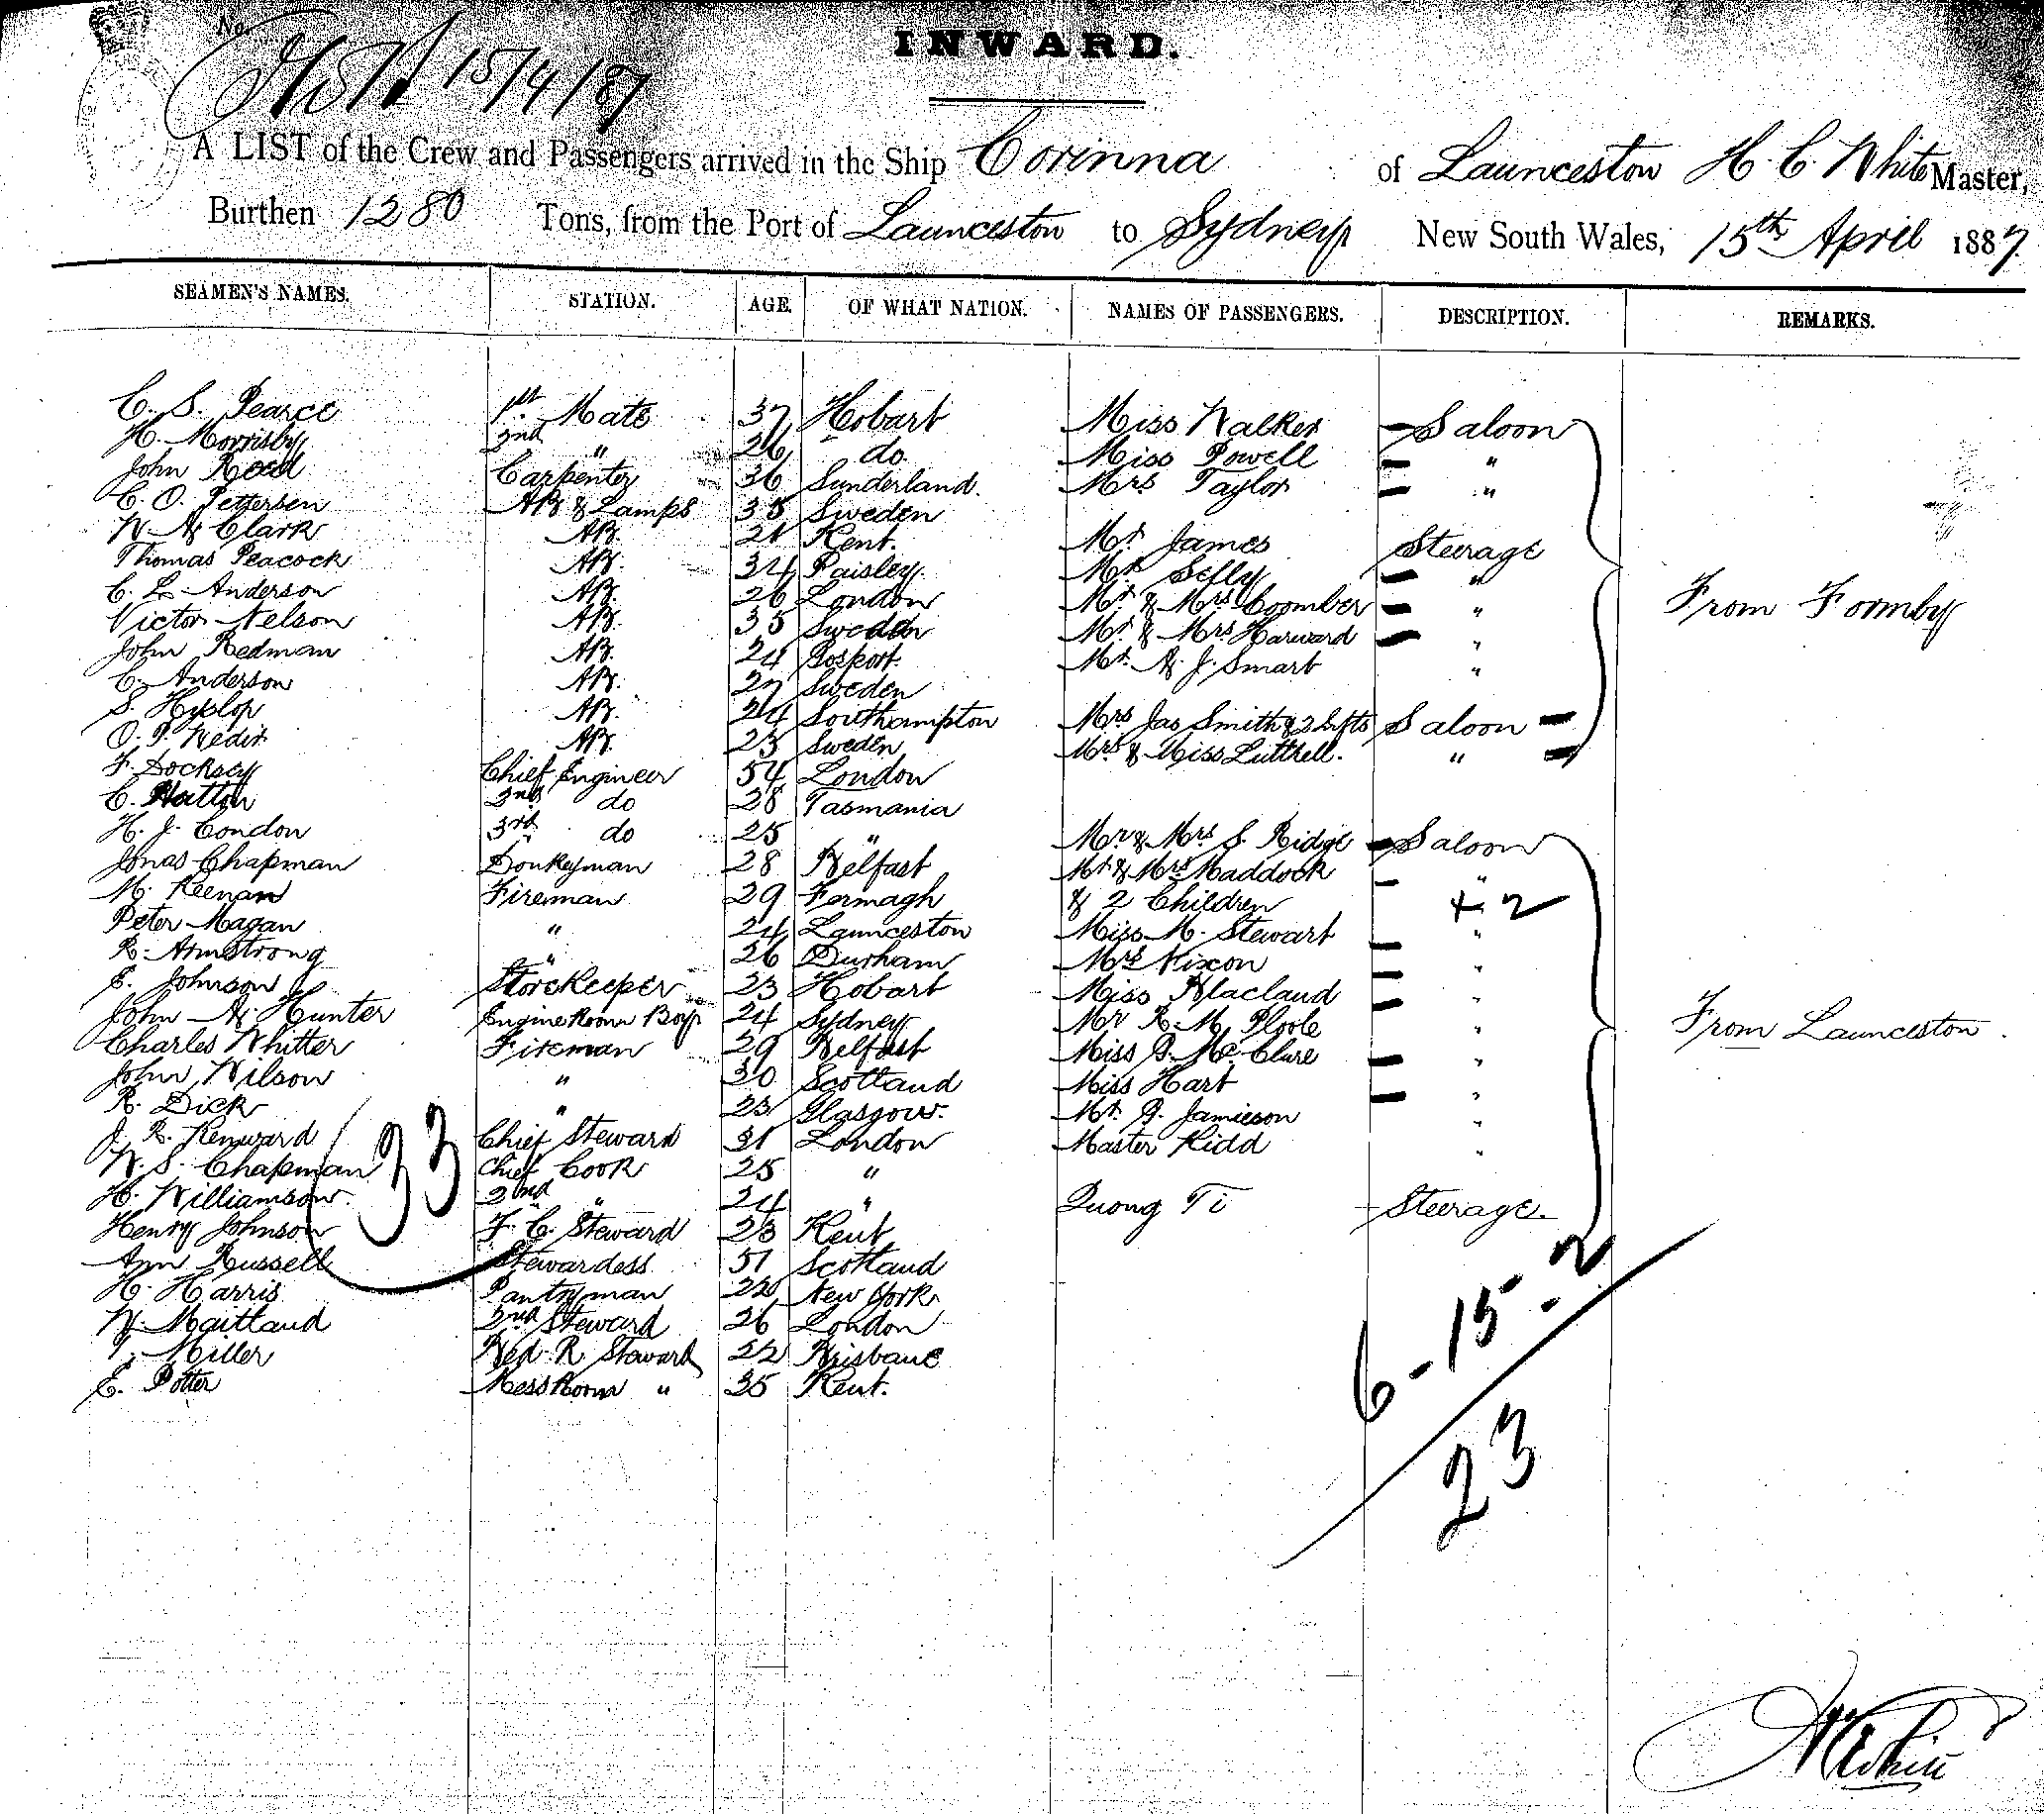 No.
15/4/87
INWARD.
A LIST of the Crew and Passengers arrived in the Ship Corinna of Launceston H. C. White Master,
Burthen 1280 Tons, from the Port of Launceston to Sydney New South Wales, 15th April 1887.
SEAMEN'S NAMES. STATION. AGE. OF WHAT NATION. NAMES OF PASSENGERS. DESCRIPTION. REMARKS.
C. S. Pearce 1st Mate 37 Hobart Miss Walker Saloon
H. Morrisby 2nd " 26 do Miss Powell "
John Reed Carpenter 36 Sunderland. Mrs Taylor "
C. O. Pettersen AB & Lamps 35 Sweden
W. A. Clark AB. 21 Kent. Mr James Steerage
Thomas Peacock AB. 34 Paisley Mr "
C. L. Anderson AB. 26 London Mr & Mrs Coomber "
Victor Nelson AB. 35 Sweden Mr & Mrs Harward "
John Redman AB. 24 Gosport. Mr. A. J. Smart "
C. Anderson AB. 27 Sweden
S. Hyslop AB. 24 Southampton Mrs Jas Smith & 2 Saloon
O. P. AB. 23 Sweden Mrs & Miss Luttrell. "
F. Docksey Chief Engineer 54 London
C. Hatton 2nd do 28 Tasmania
H. J. Condon 3rd do 25 " Mr & Mrs S. Ridge Saloon
Jonas Chapman Donkeyman 28 Belfast Mr & Mrs Maddock "
M. Keenan Fireman 29 Fermagh & 2 Children + 2
Peter Magan " 24 Launceston Miss M. Stewart "
R. Armstrong " 26 Durham Mrs Nixon "
E. Johnson StoreKeeper 23 Hobart Miss Blacland "
John A. Hunter Engine Room Boy 24 Sydney Mr R. M. Ploole "
Charles Whitter Fireman 29 Belfast Miss B. McClure "
John Wilson " 30 Scotland Miss Hart "
R. Dick " 23 Glasgow. Mr. B. Jamieson "
J. R. Kenward Chief Steward 31 London Master Kidd "
W. S. Chapman Chief Cook 25 "
H. Williamson. 2nd " 24 " Quong Ti Steerage.
Henry Johnson F. C. Steward 23 Kent
Ann Russell Stewardess 51 Scotland
H. Harris Pantryman 22 New York
W. Maitland 2nd Steward 26 London
Miller Bed. R. Steward 22 Brisbane
E. Potter Mess Room " 35 Kent.
From Formby
From Launceston.
33
6 - 15 - 2
23